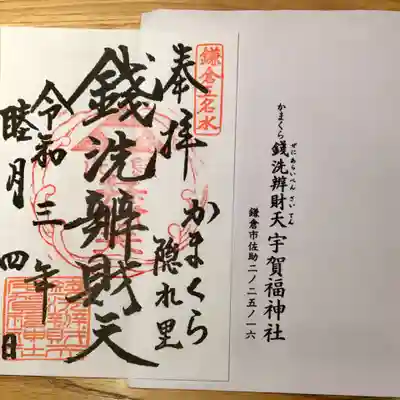 鎌倉五名水
奉拝
かまくら
隠れ里
錢洗辨財天
令和三年
睦月四日
ぜにあらいべんざいてん
かまくら 錢洗辨財天 宇賀福神社
鎌倉市佐助二ノ二五ノ一六